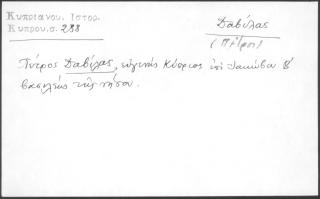 Κυπριανου. Ιστορ.
Κυπρου. σ. 288
Δαβίλας
(Πιέρος)
Πιέρος Δαβίλας, εὐγενὴς Κύπριος ἐπὶ Ἰακώβου Β΄
βασιλέως τῆς νήσου.